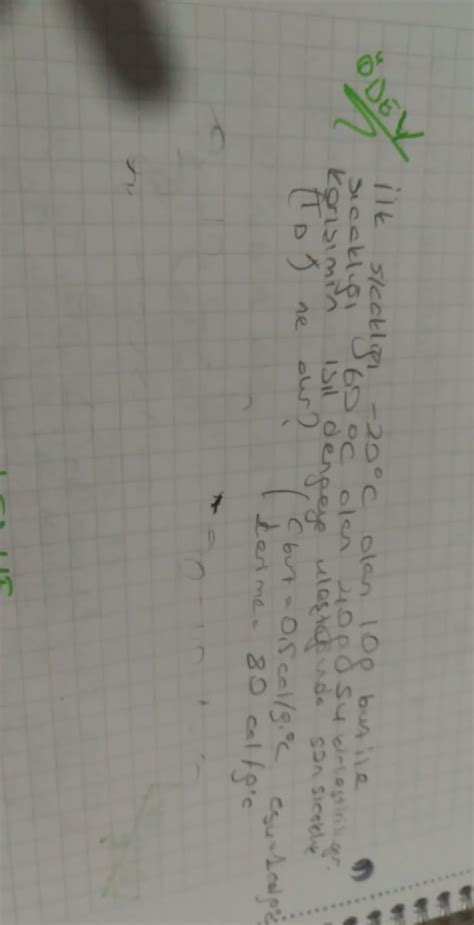 ÖDEV
ilk sıcaklığı -20°C olan 10g buz ile
sıcaklığı 60°C olan 40g su
karışımın ısıl dengeye ulaştığında son sıcaklık
(TD) ne olur?
(Cbuz = 0,5 cal/g.°C
Lerime = 80 cal/g°C